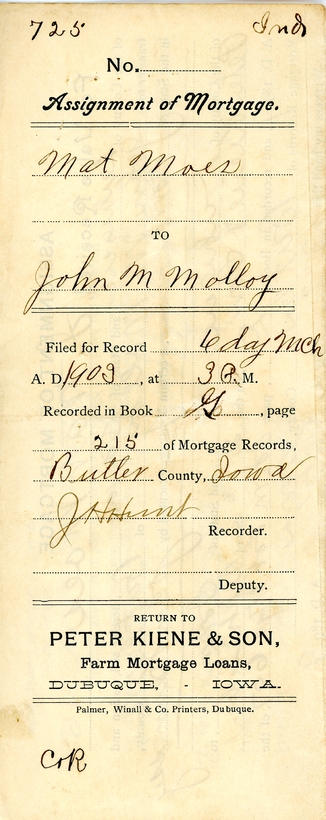 725 Ind
No.
Assignment of Mortgage.
Mat Moes
TO
John M Molloy
Filed for Record 6 day Mch
A. D. 1903, at 3 P. M.
Recorded in Book G, page
215 of Mortgage Records,
Butler County, Iowa
J H Hunt
Recorder.
Deputy.
RETURN TO
PETER KIENE & SON,
Farm Mortgage Loans,
DUBUQUE, - IOWA.
Palmer, Winall & Co. Printers, Dubuque.
CoR